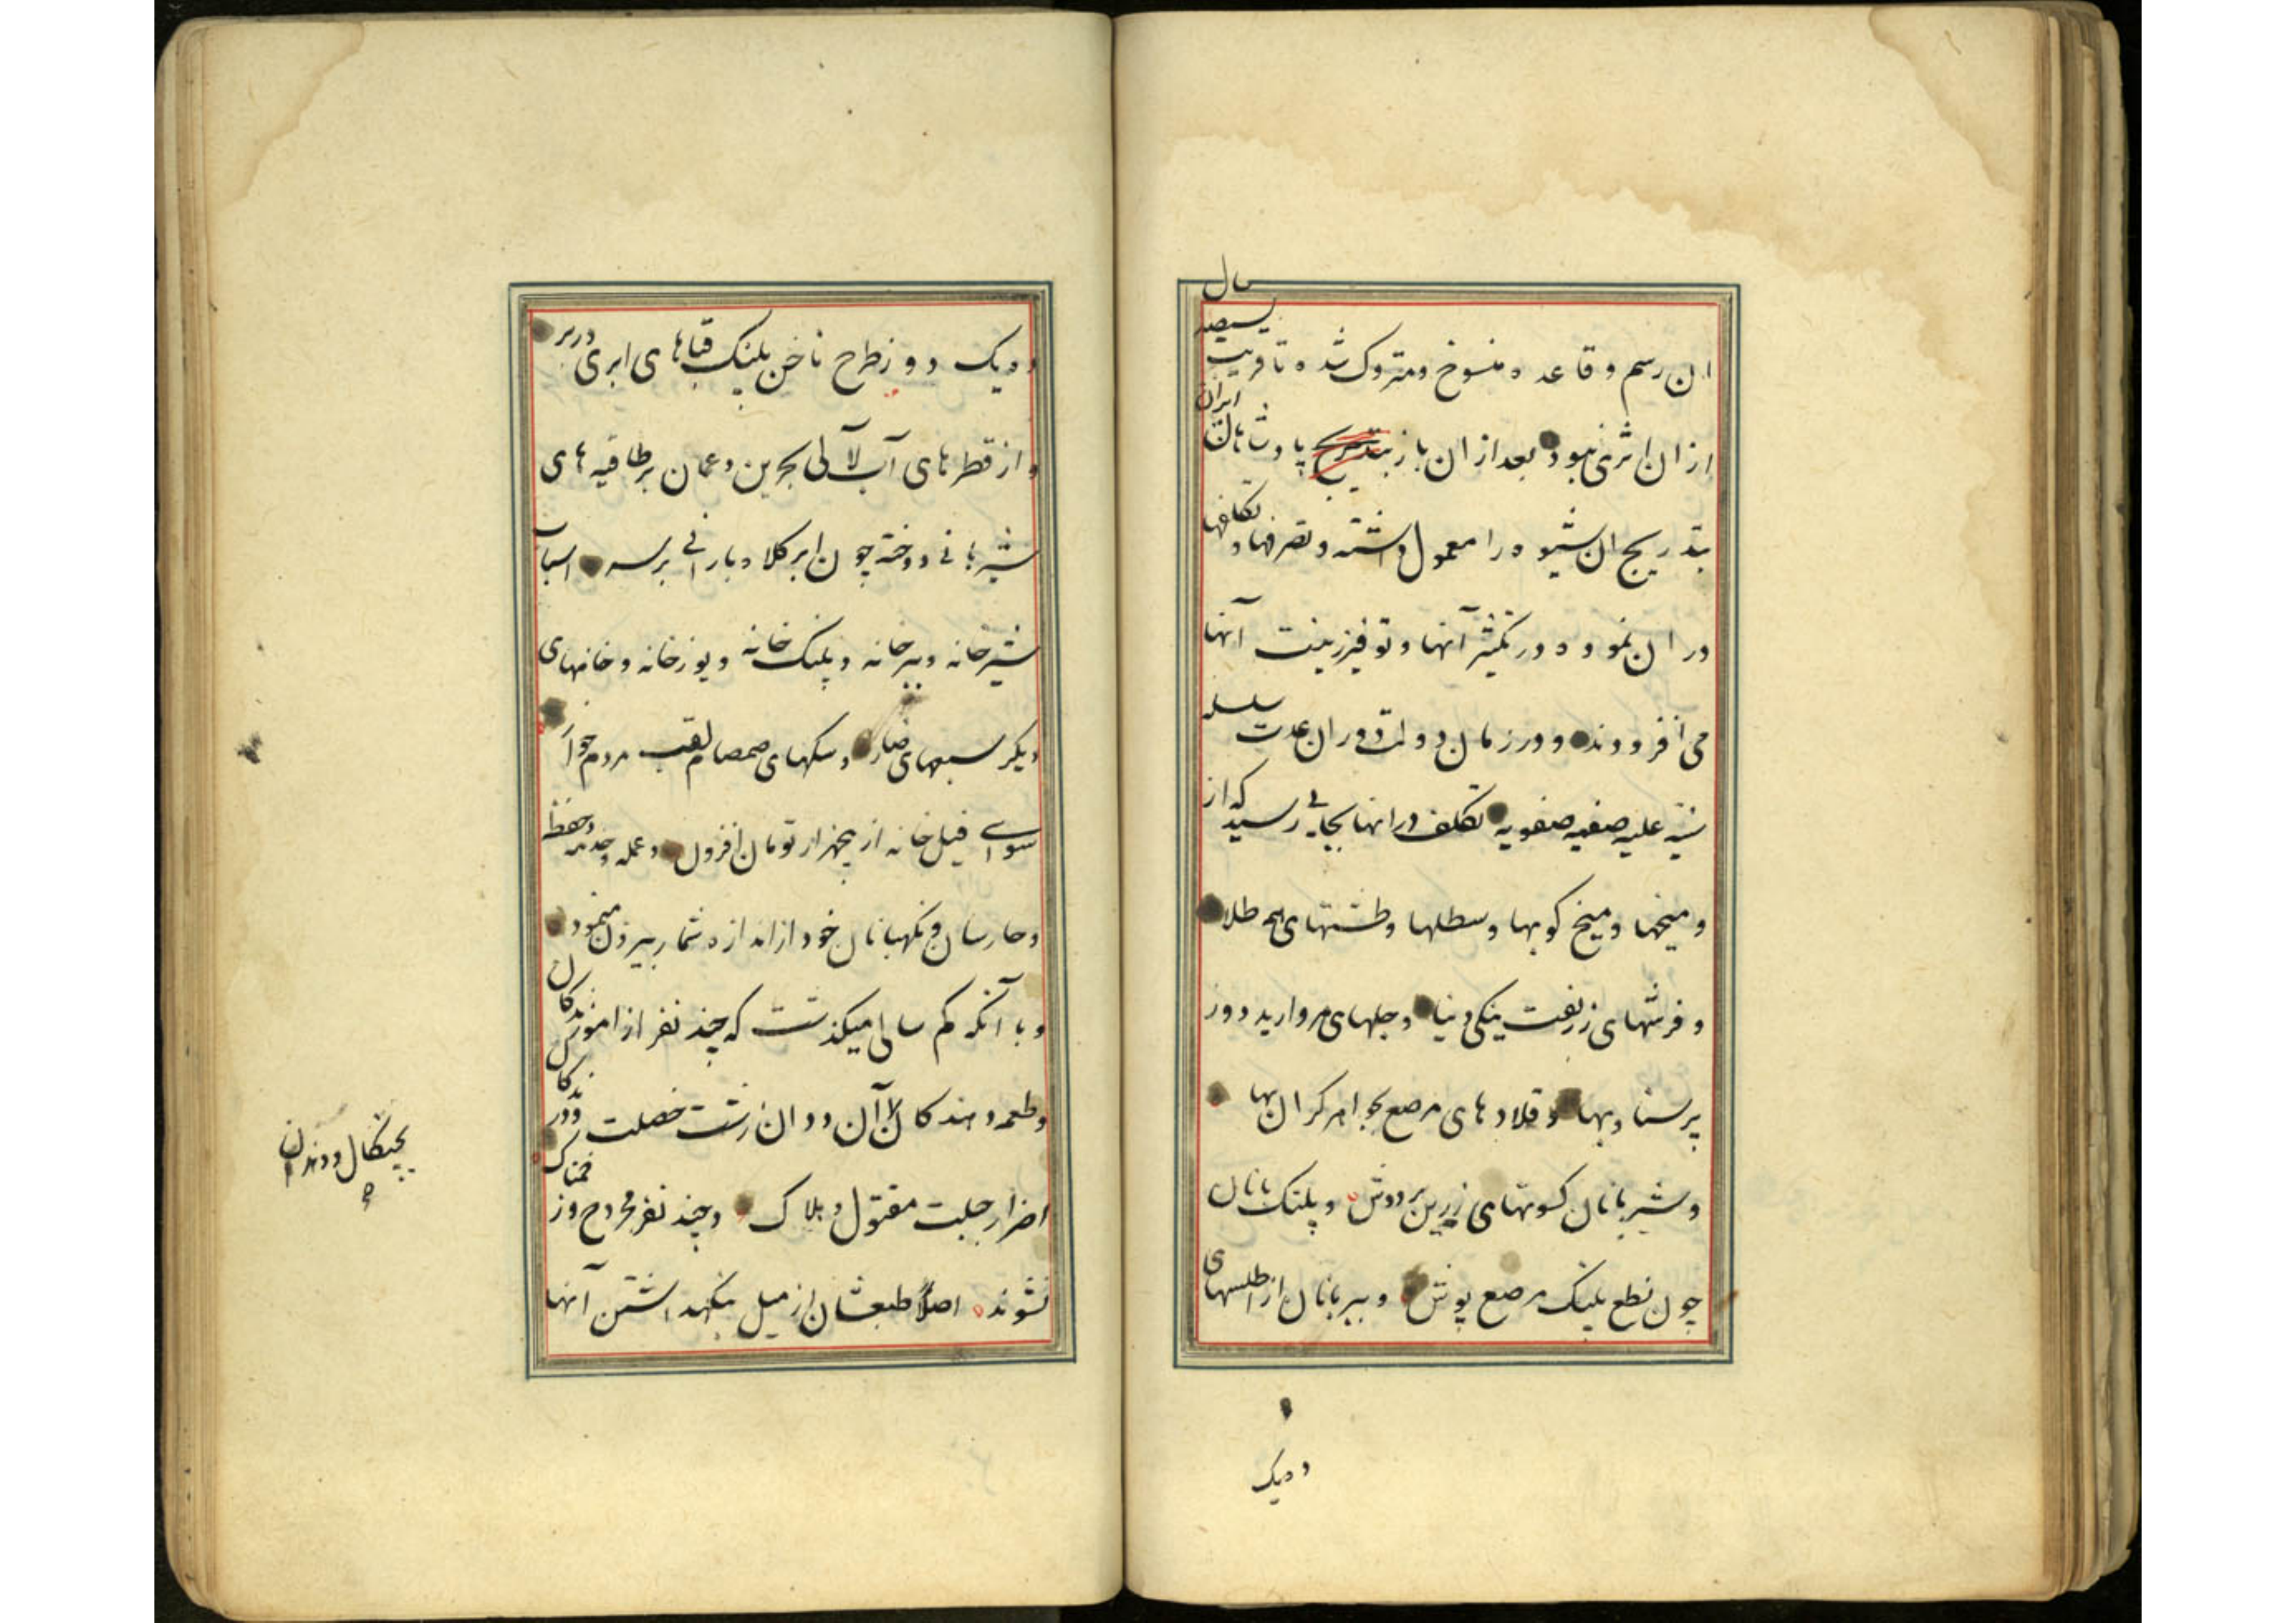 ان رسم و قاعده منسوخ و متروک شده تا قریب سیصد سال
از ان اثری نبود بعد از ان باز بتدریج پادشاهان ایران
بتدریج ان شیوه را معمول داشته و تصرفها و تکلفها
در ان نموده در تکثیر آنها و توفیر زینت آنها
می افزودند و در زمان دولت دوران عدت سلسله
سنیه علیه صفیه صفویه تکلف در انها بجایی رسید که از
و میخها و میخ کوبها و سطلها و طشتهای همه طلا
و فرشهای زربفت ینکی دنیا و جلهای مروارید دوز
پر سنا و بها و قلادهای مرصع بجواهر کران بها
و شیربانان کسوتهای زرین بر دوش و پلنک بانان
چون نطع پلنک مرصع پوش و ببربانان از اطلسهای
ودیک
ودیک دوز طرح ناخن پلنک قباهای ابری در بر
و از قطرهای آب لآلی بحرین و عمان بر طاقیه های
شیربانی دوخته چون ابر کلاه بارانی بر سر اسباب
شیرخانه و ببرخانه و پلنک خانه و یوزخانه و خانهای
دیکر سبعهای ضار و سکهای صمصام لقب مردم خوار
سوای فیل خانه از پنجهزار تومان افزون و عمله و خدمه و حفظه
و حارسان و نکهبانان خود از اندازه شمار بیرون مینمود
و با آنکه کم سالی میکذشت که چند نفر از اموزندکان
و طعمه دهندکان آن ددان زشت خصلت و درندکان
اضرار جبلت مقتول و هلاک و چند نفر مجروح و زخمناک
نشوند اصلاً طبعشان از میل نکهداشتن آنها
بچنکال و دندان